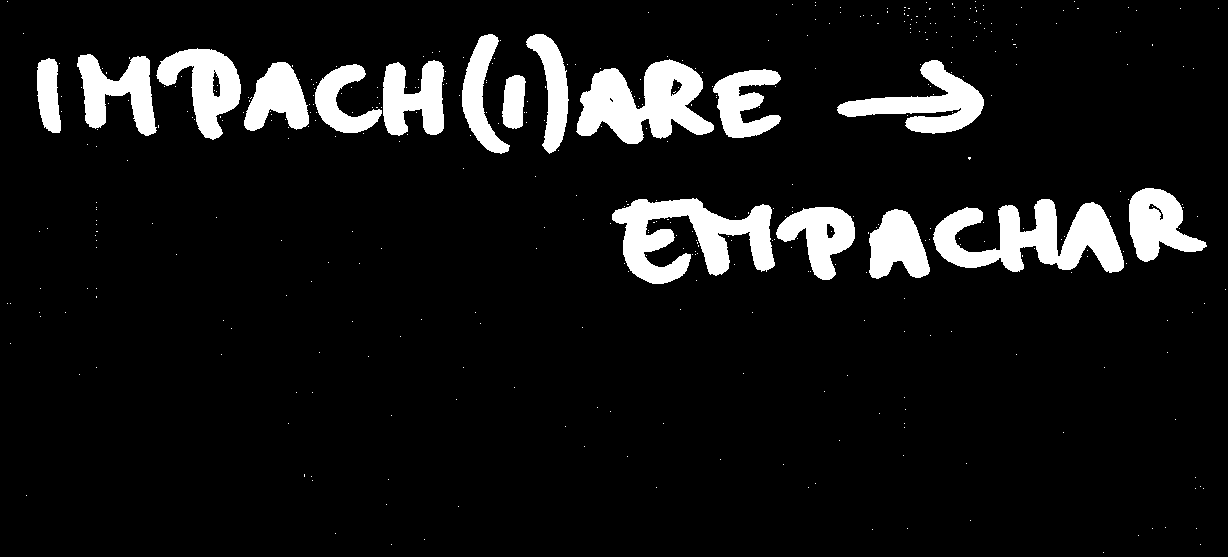 IMPACH(I)ARE →
EMPACHAR